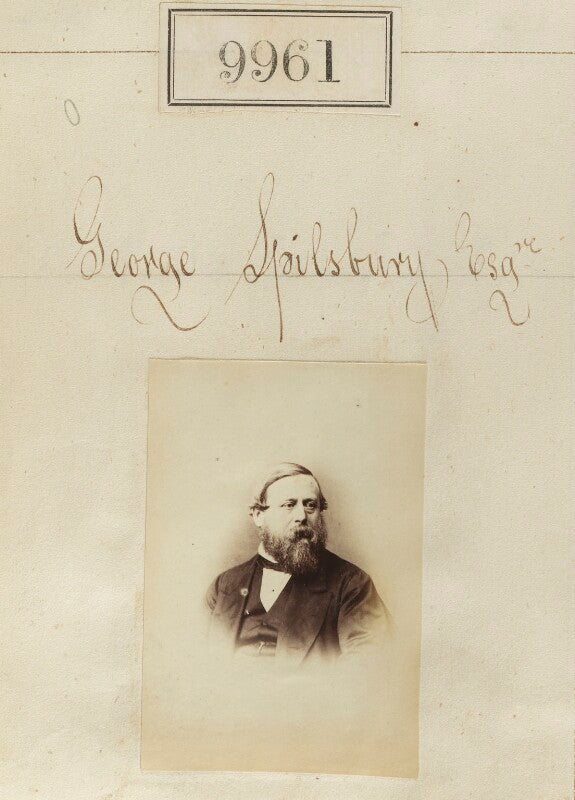 9961
George Spilsbury Esqre